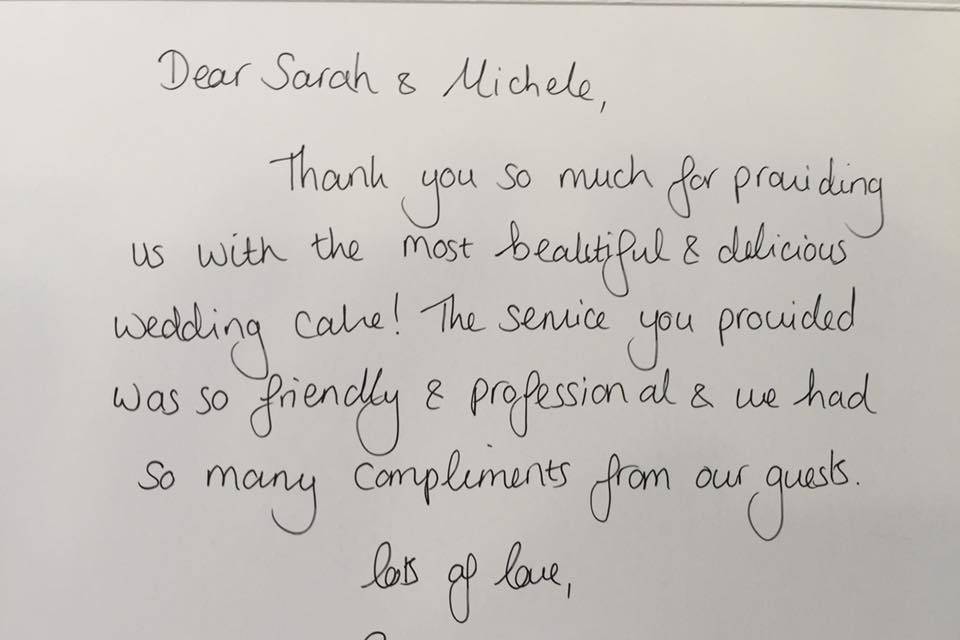 Dear Sarah & Michele,
Thank you so much for providing
us with the most beautiful & delicious
wedding cake! The service you provided
was so friendly & professional & we had
so many compliments from our guests.
lots of love,